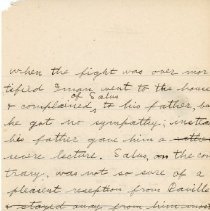 when the fight was over mor
tified man went to the house
of Salus
& complained to his father, bu
he got no sympathy; instea
his father gave him a rather
severe lecture. Salus, on the con
trary, was not so sure of a
pleasant reception from Camille
& stayed away from him